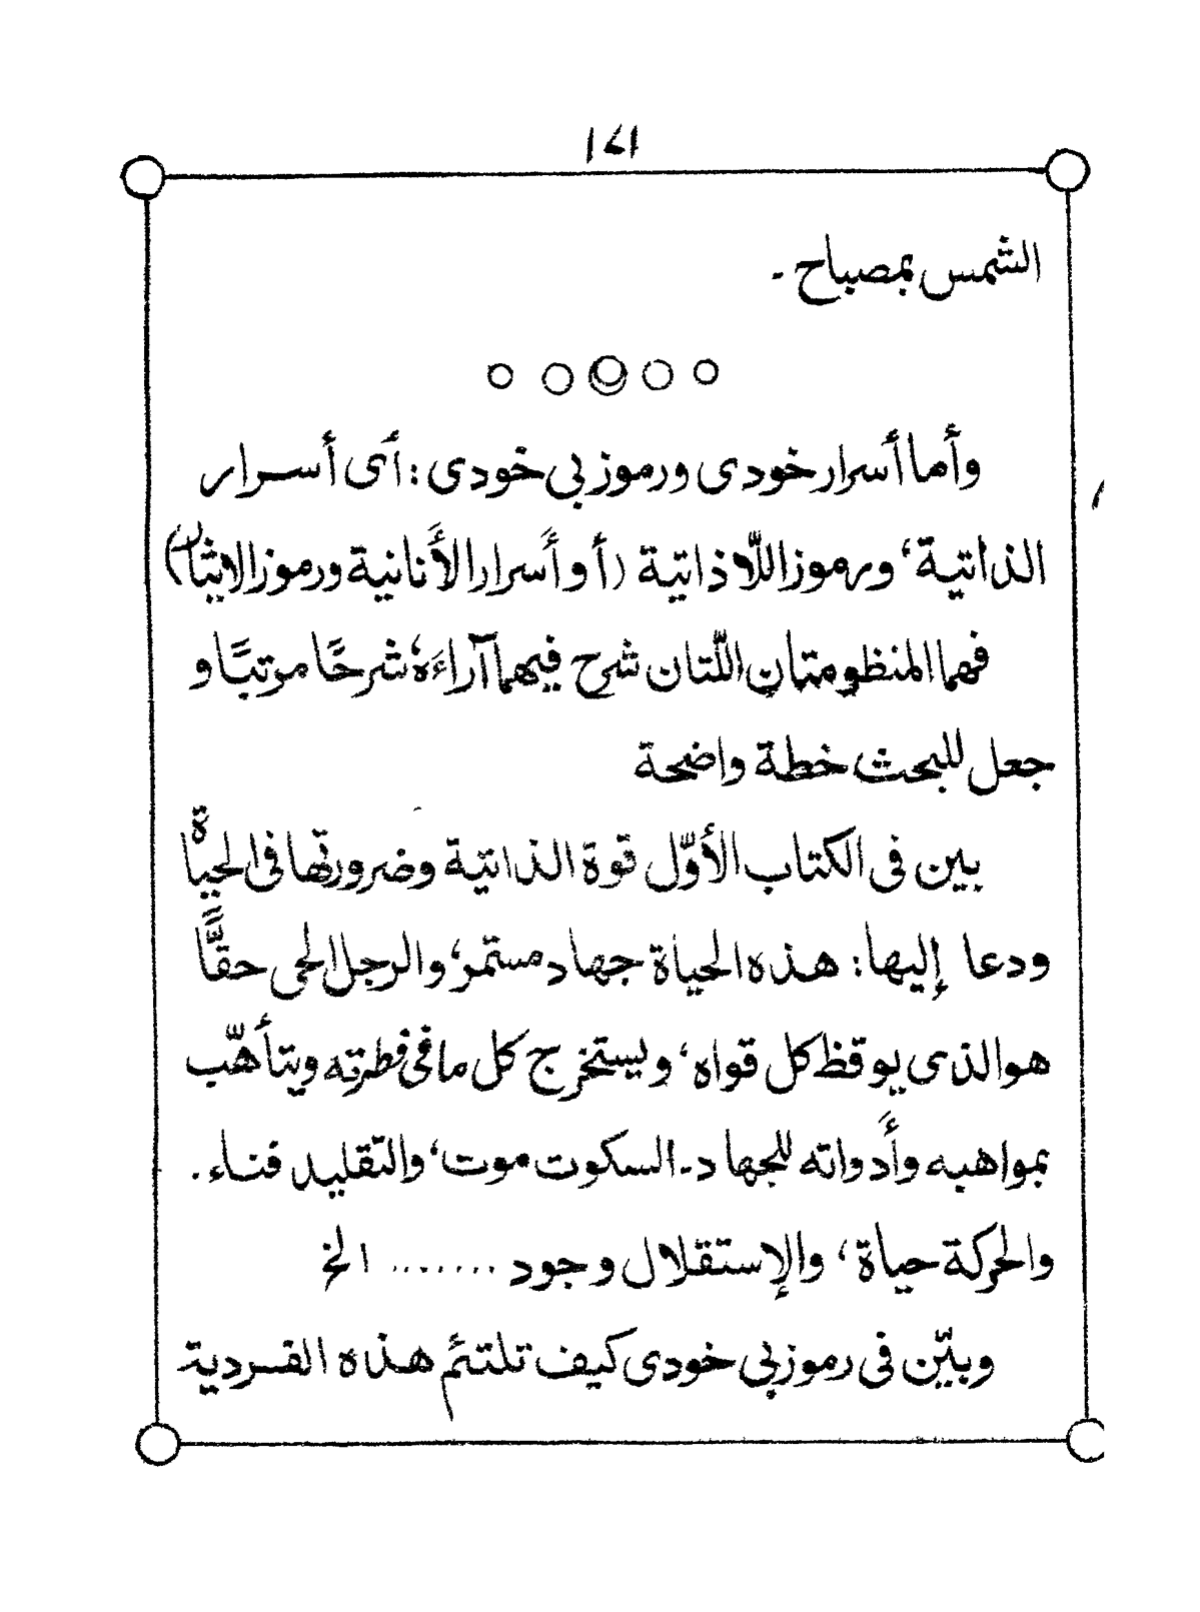 ١٤١
الشمس بمصباح -
وأما أسرار خودى ورموز بى خودى : أى أسرار
الذاتية، ورموز اللّاذاتية (أو أسرار الأنانية ورموز الايثار)
فهما المنظومتان اللّتان شرح فيهما آراءَه، شرحًا مرتبًا و
جعل للبحث خطة واضحة
بين فى الكتاب الأوّل قوة الذاتية وضرورتها فى الحياة
ودعا إليها: هذه الحياة جهاد مستمر، والرجل الحى حقًّا
هو الذى يوقظ كل قواه، ويستخرج كل ما فى فطرته ويتأهّب
بمواهبه وأدواته للجهاد - السكوت موت، والتقليد فناء .
والحركة حياة، والإستقلال وجود ........ الخ
وبيّن فى رموز بى خودى كيف تلتئم هذه الفردية